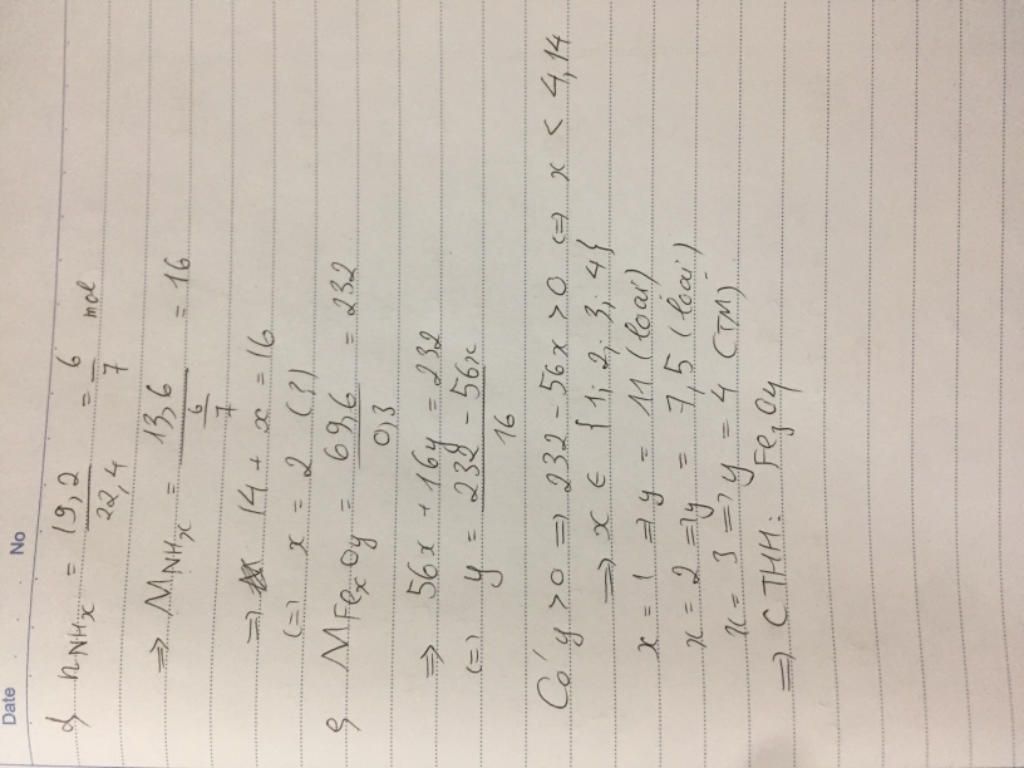 Date No
d) nNHx = 19,2/22,4 = 6/7 mol
=> MNHx = 13,6/(6/7) = 16
=> 14 + x = 16
(=) x = 2 (?)
e) MFexOy = 69,6/0,3 = 232
=> 56x + 16y = 232
(=) y = (232 - 56x)/16
Có y > 0 => 232 - 56x > 0 (=) x < 4,14
=> x ∈ {1; 2; 3; 4}
x = 1 => y = 11 (loại)
x = 2 => y = 7,5 (loại)
x = 3 => y = 4 (TM)
=> CTHH: Fe3O4